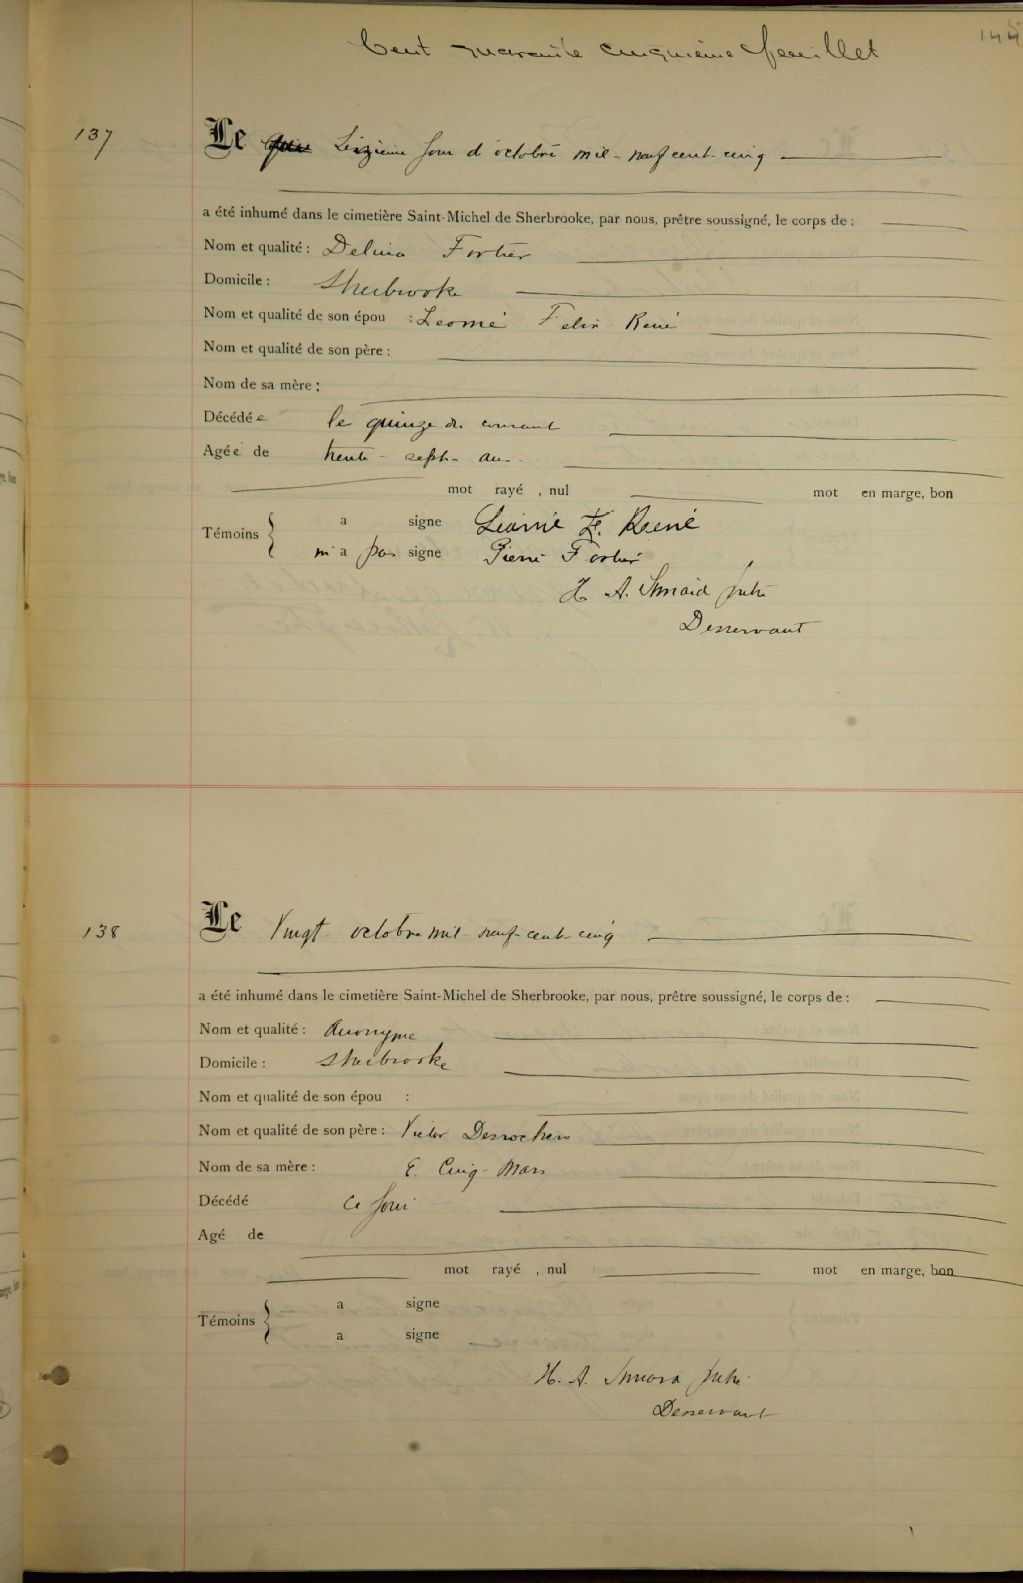 Cent quarante cinquième feuillet
145
137
Le Seizième jour d'octobre mil-neuf cent-cinq
a été inhumé dans le cimetière Saint-Michel de Sherbrooke, par nous, prêtre soussigné, le corps de :
Nom et qualité : Delina Fortier
Domicile : Sherbrooke
Nom et qualité de son épou : Felix René
Nom et qualité de son père :
Nom de sa mère :
Décédée le quinze du courant
Agée de trente-sept-ans.
mot rayé , nul mot en marge, bon
Témoins a signe F. René
n'a pas signe Pierre Fortier
H. A. Simard Ptre
Desservant
138
Le Vingt octobre mil neuf-cent-cinq
a été inhumé dans le cimetière Saint-Michel de Sherbrooke, par nous, prêtre soussigné, le corps de :
Nom et qualité : Anonyme
Domicile : Sherbrooke
Nom et qualité de son épou :
Nom et qualité de son père : Victor Desrochers
Nom de sa mère : E. Cinq-Mars
Décédé Ce jour
Agé de
mot rayé , nul mot en marge, bon
Témoins a signe
a signe
H. A. Simard Ptre
Desservant